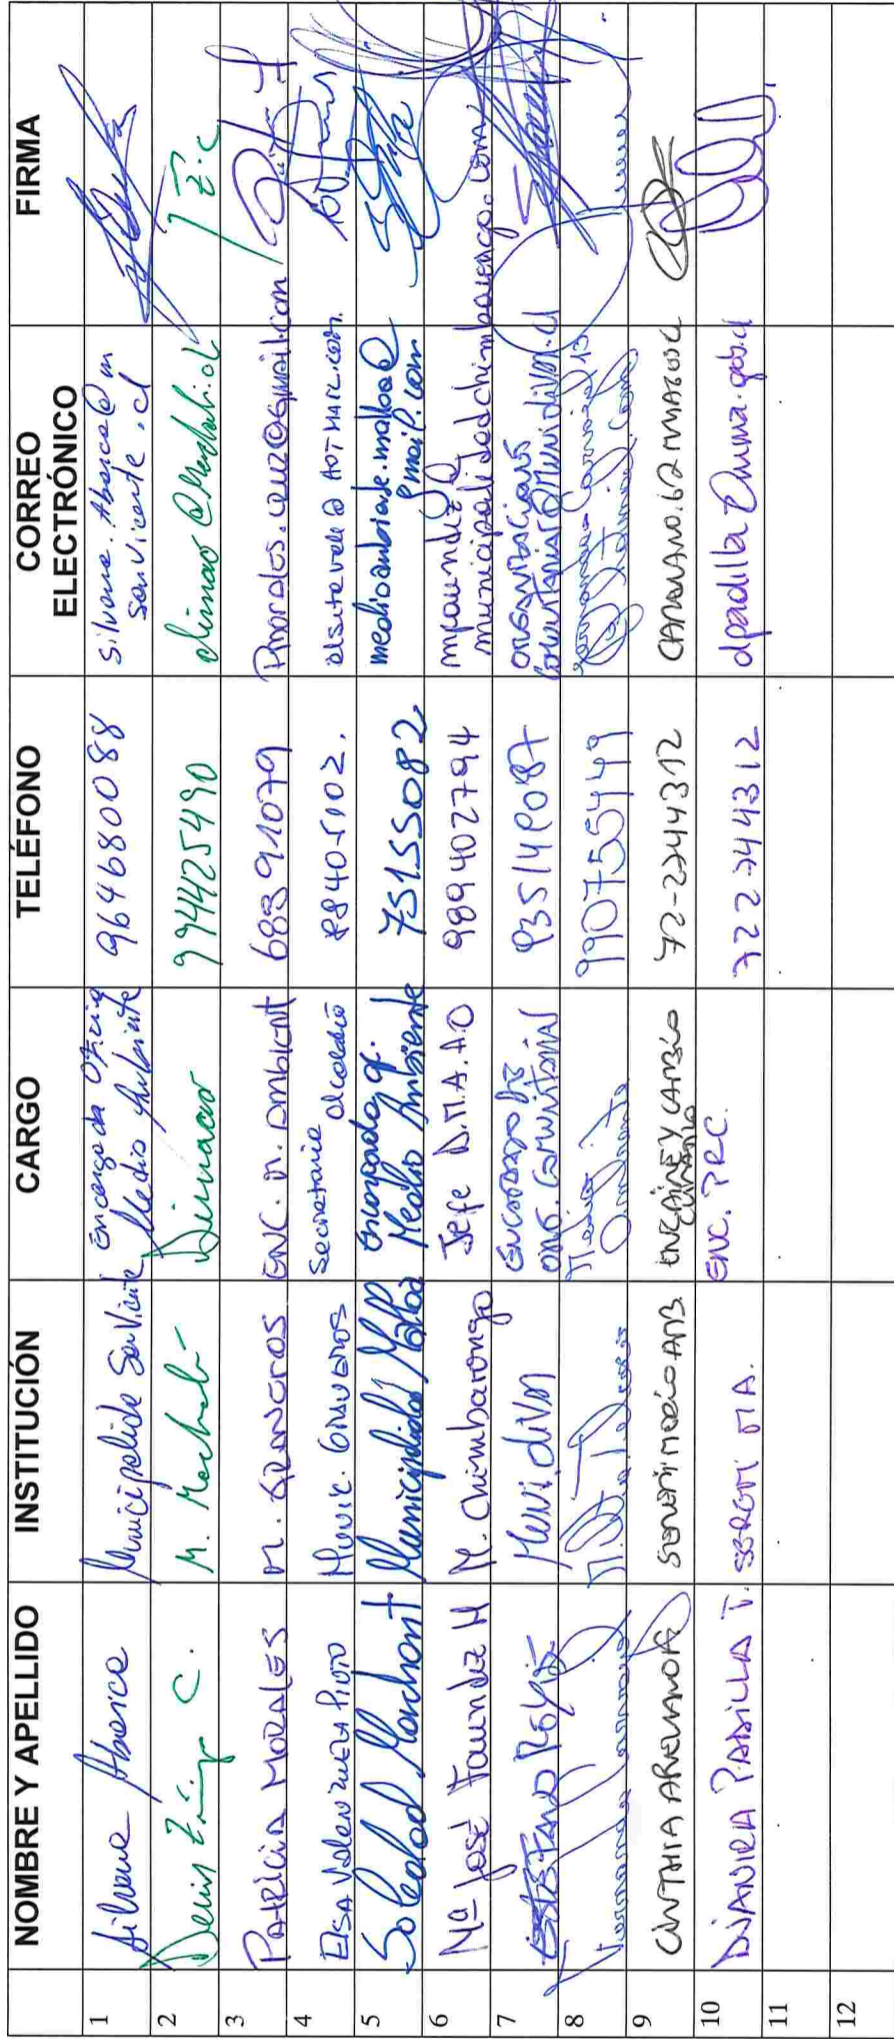 NOMBRE Y APELLIDO INSTITUCIÓN CARGO TELÉFONO CORREO ELECTRÓNICO FIRMA
1 Silvana Abarca Municipalida San Vicente Encargada Oficina Medio Ambiente 964680088 Silvana.Abarca@m sanvicente.cl
2 Denis C. M. Machalí Dimao 994425490
3 PATRICIA MORALES M. GRANEROS ENC. M. AMBIENT 68391079 Pmorales.quz@gmail.com
4 ELSA Valenzuela PINTO Munic. GRANEROS Secretaria alcaldía 88405102.
5 Soledad Marchant Municipalidad Malloa encargada of. Medio Ambiente 75155082 medioambiente.malloa@gmail.com
6 Mª José Faundez M M. Chimbarongo Jefe D.M.A.A.O 989402794 mfaundez@municipalidadchimbarongo.com
7 Muni ENCARGADO DE ORG. Comunitarias
8 Medio Ambiente 990755449
9 CINTHIA ARELLANO A. SEREMI MEDIO AMB. 72-2744312 CARELLANO.6@MMA.GOB.CL
10 DJANIRA PADILLA T. SEREMI MA. ENC. PRC. 722744312 dpadilla@mma.gob.cl
11
12